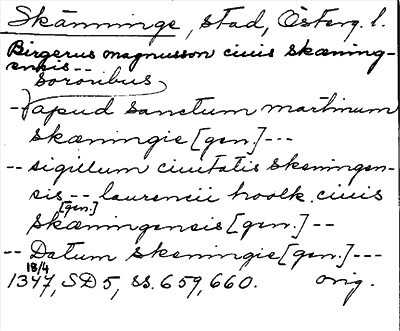 Skänninge, stad, Österg. l.
Birgerus magnusson ciuis skæning-
ensis --
sororibus
- apud sanctum martinum
skæningie [gen.] ---
-- sigillum ciuitatis skeningen-
sis -- laurencii hoolk [gen.] ciuis
skæningensis [gen.] --
-- Datum skeningie [gen.] ---
1347 18/4, SD 5, ss. 659, 660. orig.